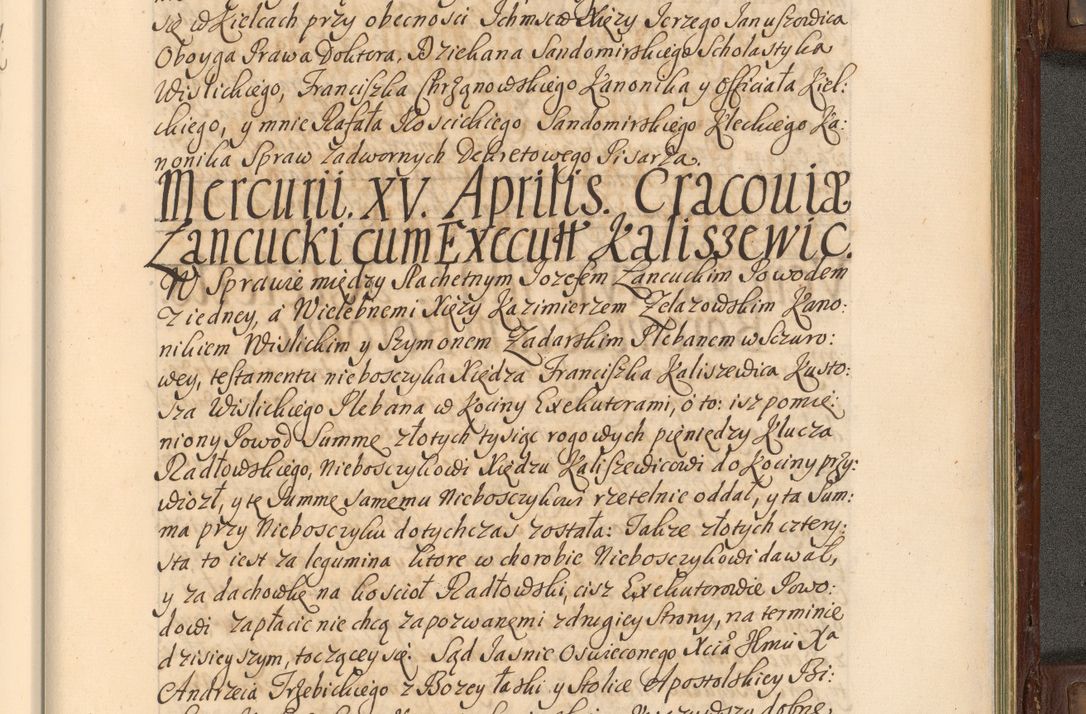 się w Kielcach przy obecności Jchmscw Xięzy Jerzego Januszowica
Oboyga Prawa Doktora, Dziekana Sandomirskiego Scholastyka
Wislickiego, Franciszka Chrząnowskiego Kanonika y Officiała Kiel:
ckiego, y mnie Rafała Koscickiego Sandomirskiego Kieckiego Ka:
nonika Spraw Zadwornych Dekretowego Pisarza.
Mercurii. XV. Aprilis. Cracouiæ
Zancucki cum Executt Kaliszewic.
W Sprawie między Slachetnym Jozefem Zancuckim Powodem
z iedney, a Wielebnemi Xięzy Kazimierzem Zelazowskim Kano:
nikiem Wislickim y Szymonem Zadarskim Plebanem w Sczuro:
wey, testamentu nieboszczyka Xiędza Franciszka Kaliszewica Kusto:
sza Wislickiego Plebana w Kociny Exekutorami, o to: isz pomie:
niony Powod Summę złotych tysiąc rogowych pieniędzy Klucza
Radłowskiego, Nieboscykowi Xiędzu Kaliszewicowi do Kociny przy:
wiozł, y tę Summę samemu Nieboscykowi rzetelnie oddał, y ta Sum:
ma przy Nieboscyku dotychczas została: Także złotych cztery:
sta to iest za legumina ktore w chorobie Nieboscykowi dawał,
y za dachowkę na koscioł Radłowski, cisz Exekutorowie Powo:
dowi zapłacic nie chcą zapozwanemi z drugiey strony, na terminie
dzisieyszym, toczącey się. Sąd Jasnie Oswieconego Xcia Jmci Xa
Andrzeia Trzebickiego z Bozey łaski y Stolice Apostolskiey Bi: